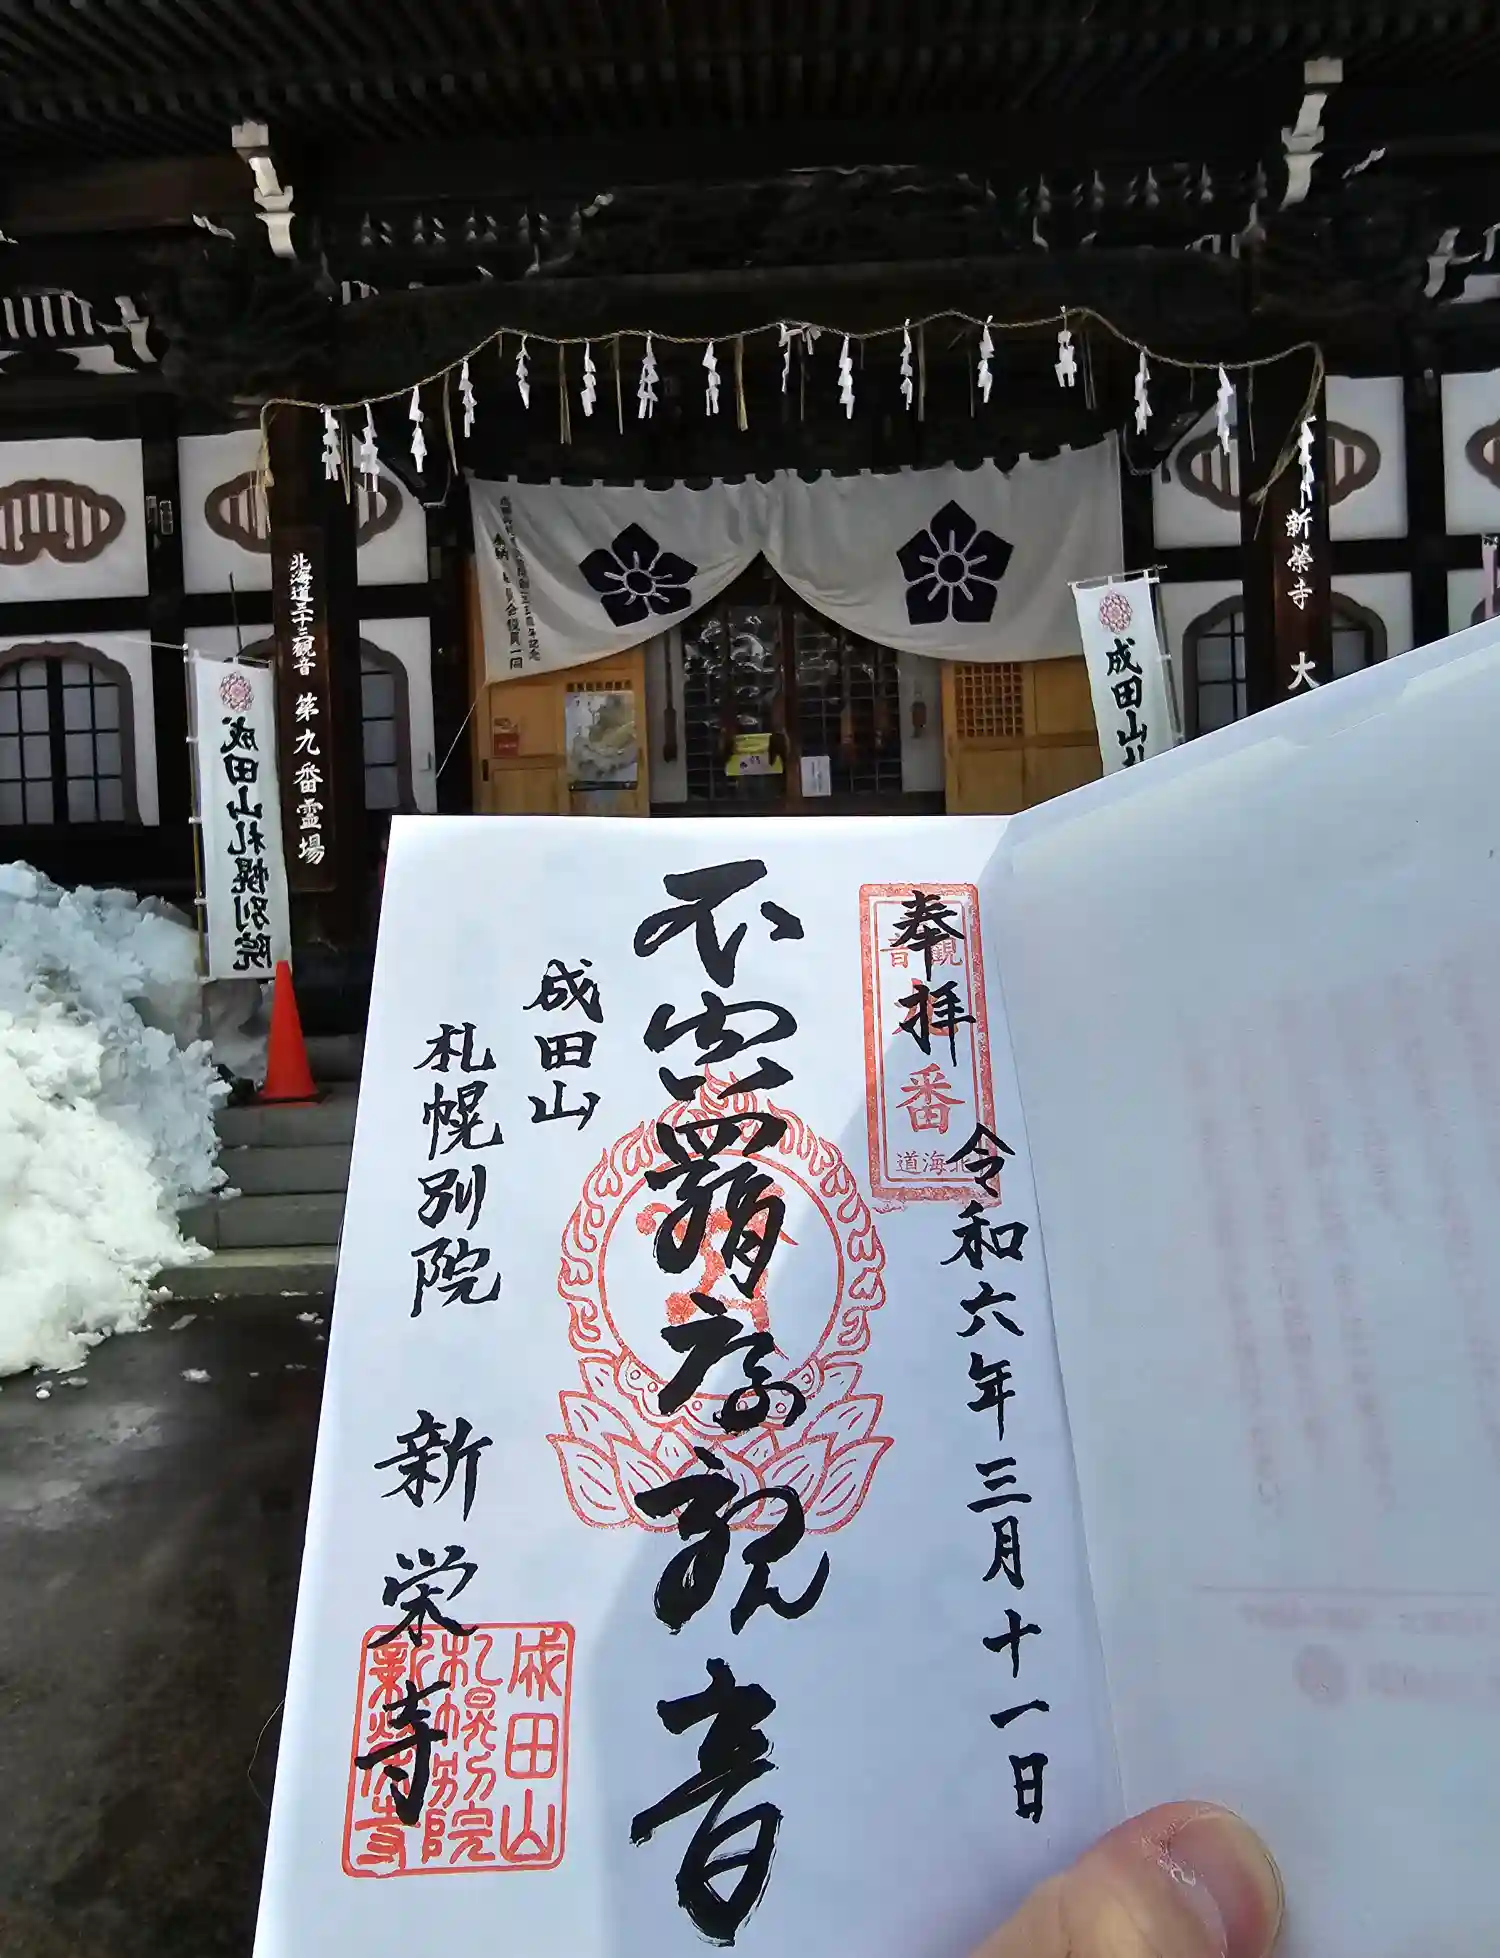 北海道三十三観音 第九番霊場
新榮寺 大
成田山札幌別院
成田山
奉拝
令和六年三月十一日
不空羂索観音
成田山
札幌別院 新栄寺
観音
番
北海道
成田山
札幌別院
新栄寺